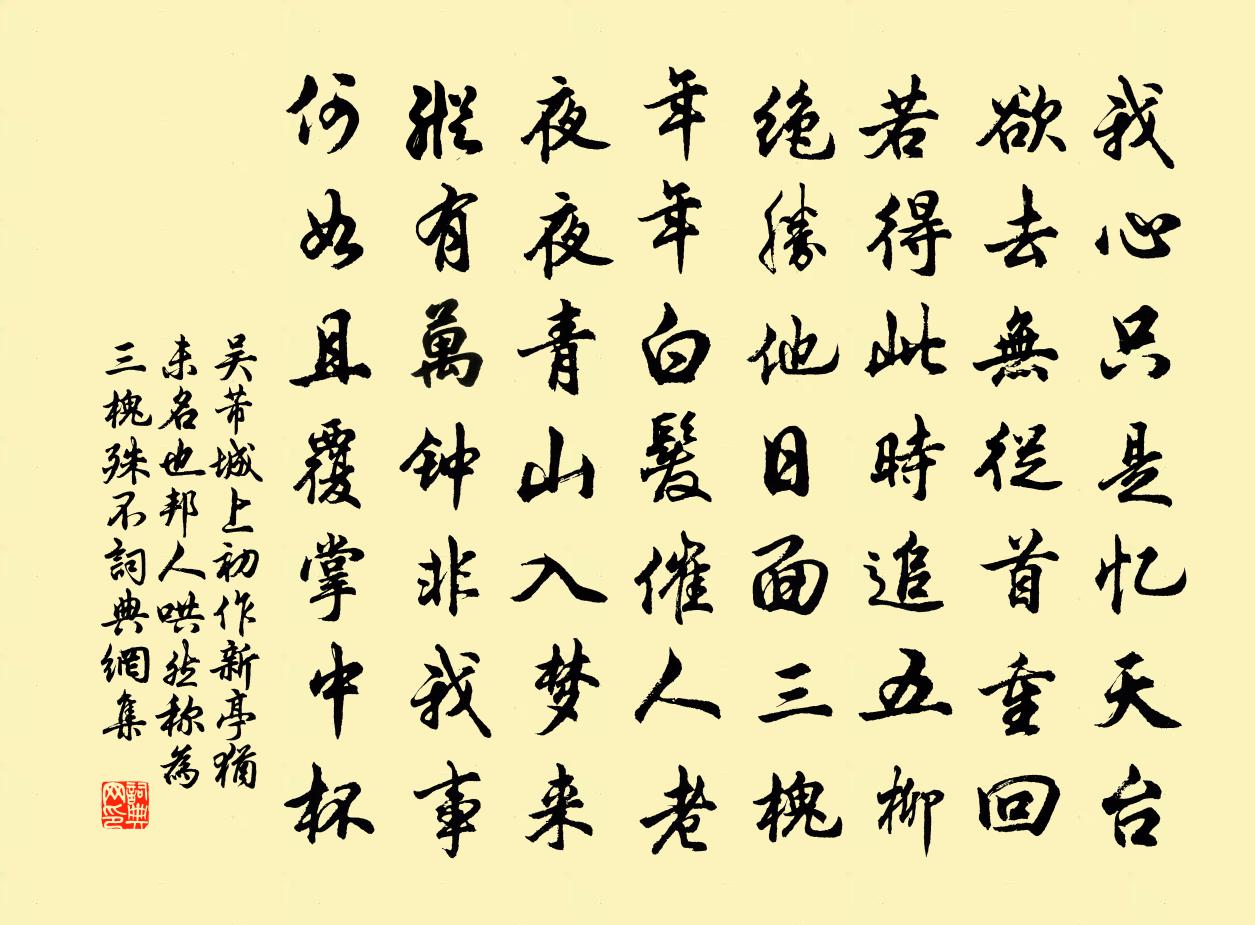 我心只是忆天台
欲去無從首重回
若得此時追五柳
绝勝他日面三槐
年年白髮催人老
夜夜青山入梦来
縱有萬钟非我事
何如且覆掌中杯
吴芾城上初作新亭猶
未名也邦人哄然称為
三槐殊不詞典網集
詞典网印